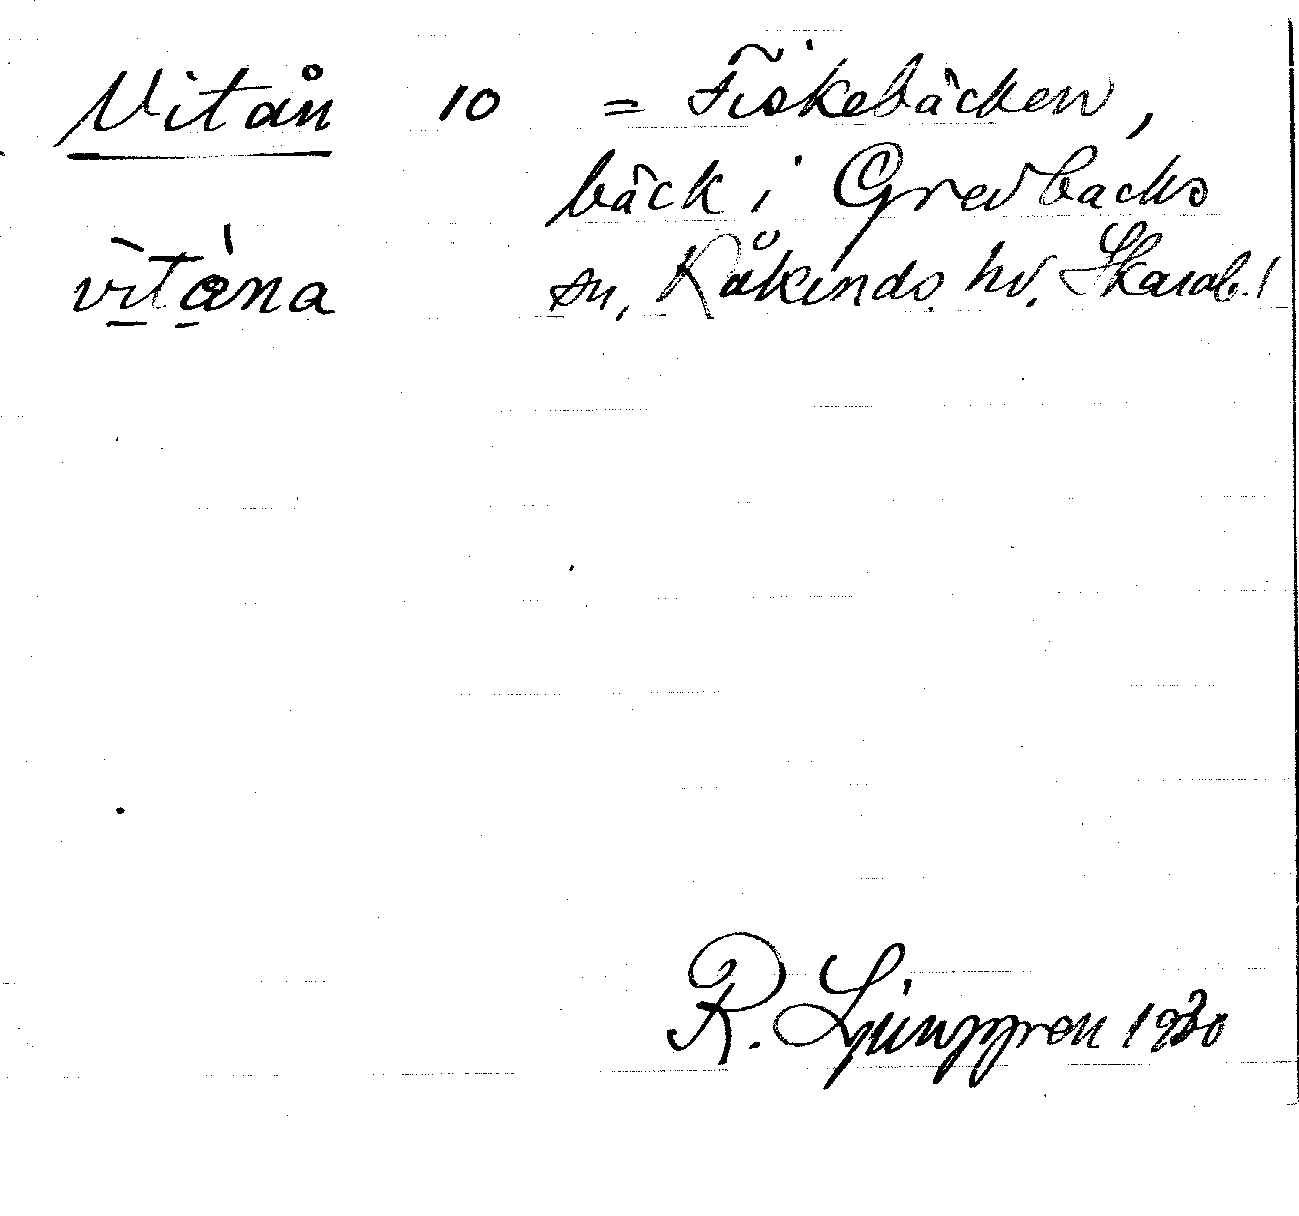 Vitån 10 = Fiskebäcken,
bäck i Grevbäcks
vìtàna sn, Kåkinds hd. Skarab. l
R. Ljunggren 1930